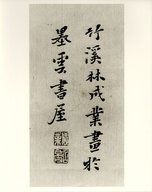 竹溪林成業畫於
墨雲書屋